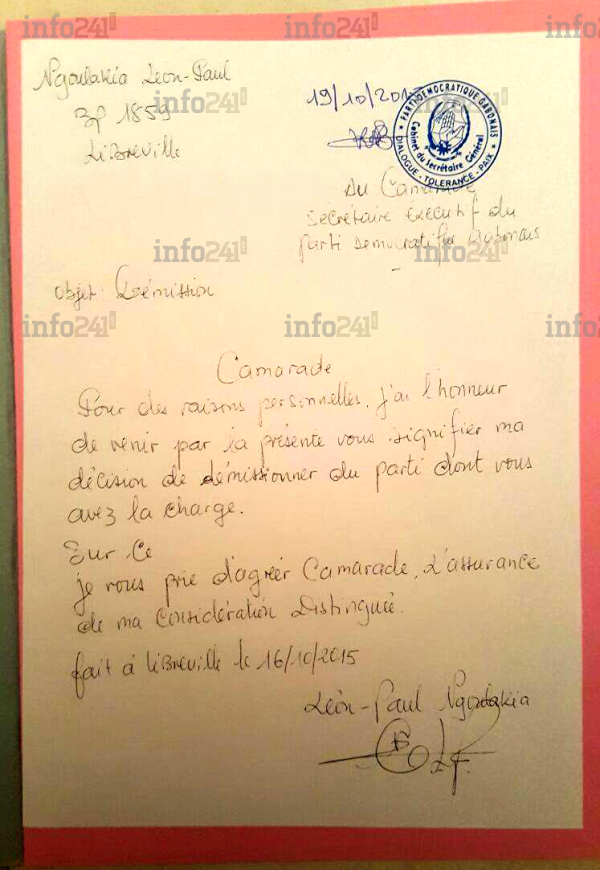 Ngoulakia Léon-Paul
BP 1859
Libreville
19/10/201
PARTI DEMOCRATIQUE GABONAIS
Cabinet du Secrétaire Général
DIALOGUE - TOLERANCE - PAIX
Au Camarade
Secrétaire Exécutif du
Parti Démocratique Gabonais
Objet: Démission
Camarade
Pour des raisons personnelles, j'ai l'honneur
de venir par la présente vous signifier ma
décision de démissionner du parti dont vous
avez la charge.
Sur ce
je vous prie d'agréer Camarade, L'assurance
de ma considération Distinguée.
fait à Libreville le 16/10/2015
Léon-Paul Ngoulakia
info241
info241
info241
info241
info241
info241
info241
info241
info241
info241
info241
info241